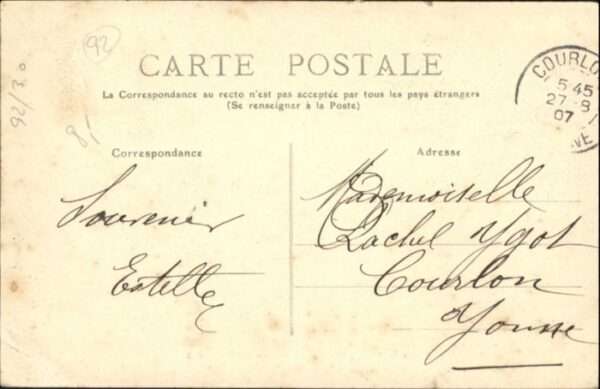 92
92/30
8,-
CARTE POSTALE
La Correspondance au recto n'est pas acceptée par tous les pays étrangers
(Se renseigner à la Poste)
COURLO
5 45
27 -8
07
NE
Correspondance
Adresse
Souvenir
Estelle
Mademoiselle
Rachel Ygot
Courlon
Yonne